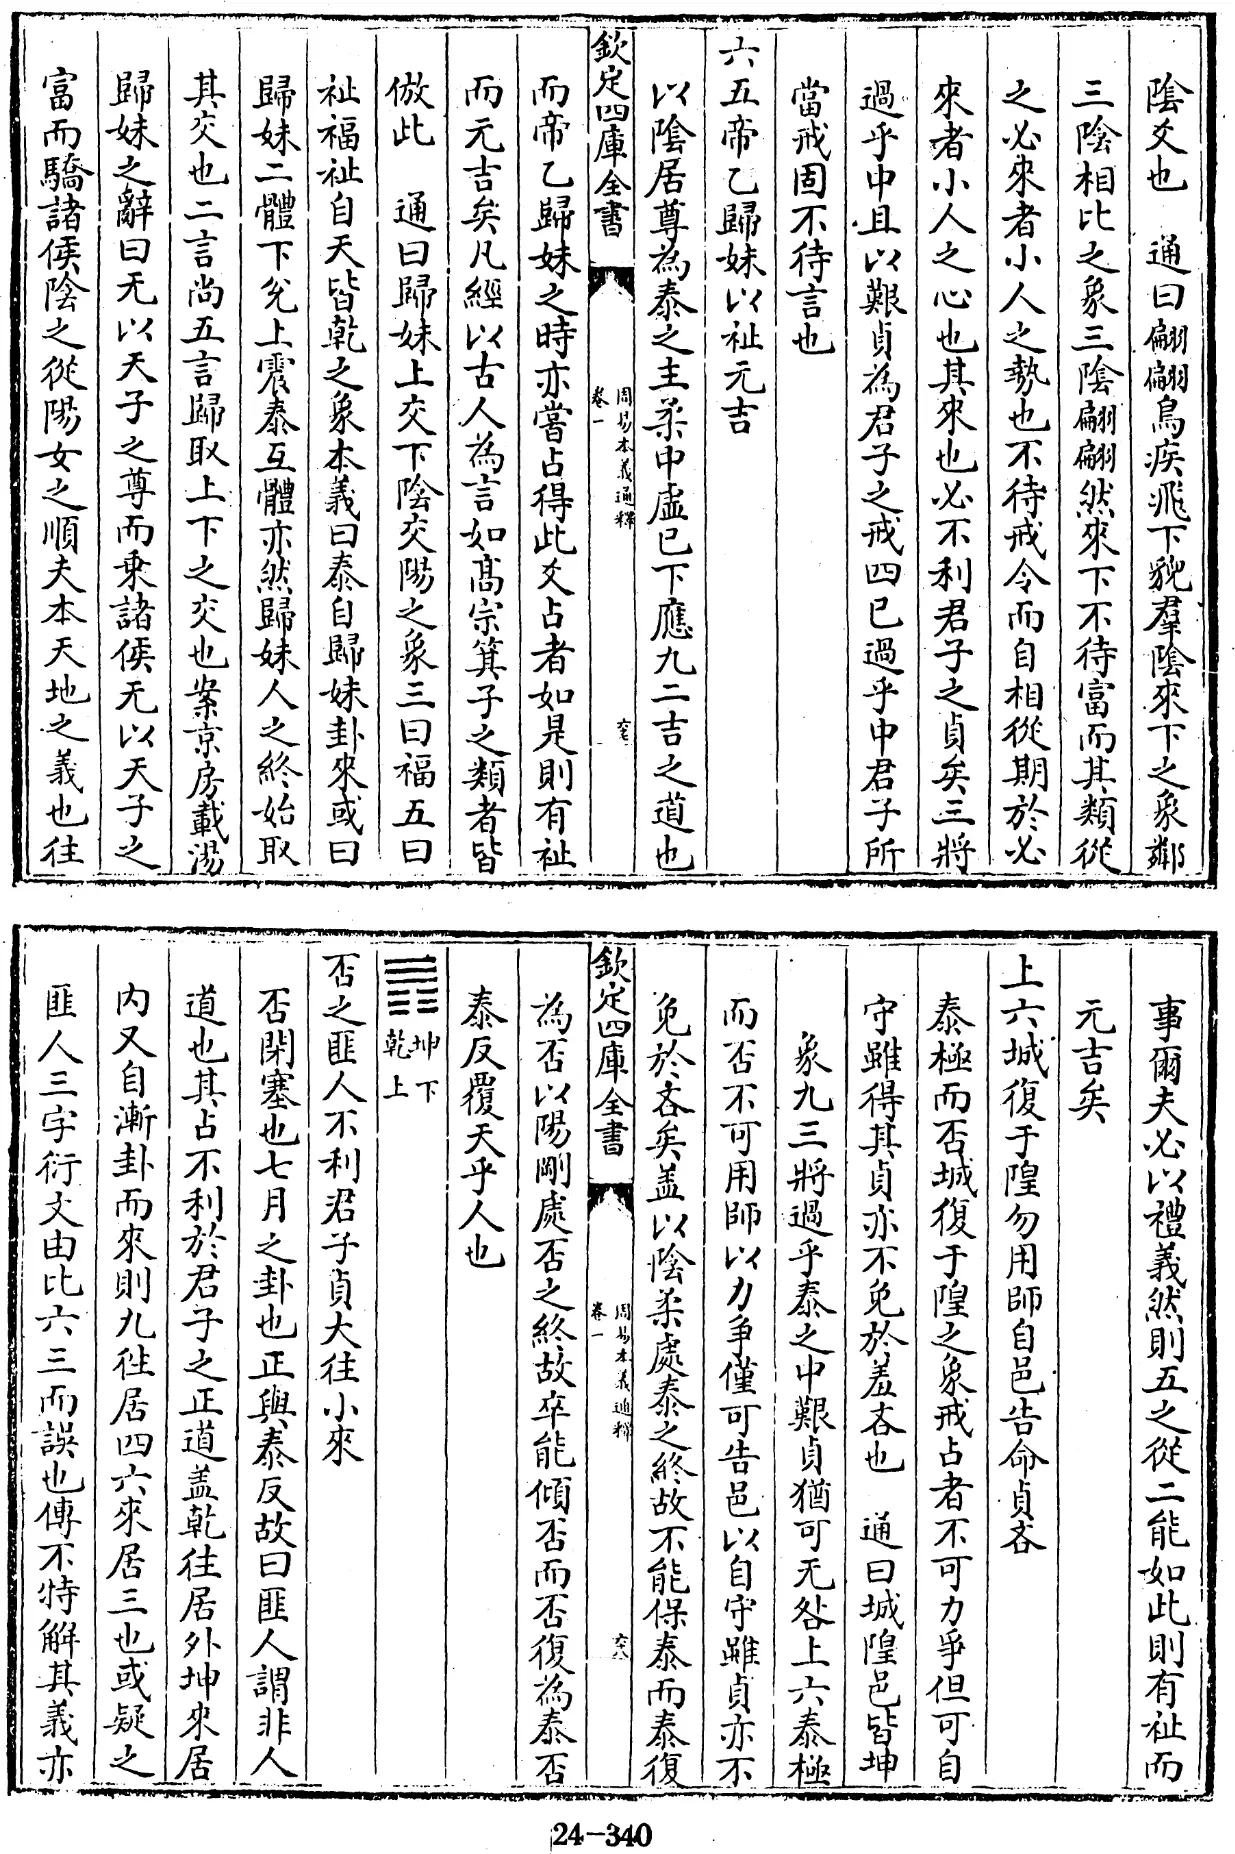 陰爻也　通曰翩翩鳥疾飛下貌羣陰來下之象鄰
三陰相比之象三陰翩翩然來下不待富而其類從
之必來者小人之勢也不待戒令而自相從期於必
來者小人之心也其來也必不利君子之貞矣三將
過乎中且以艱貞為君子之戒四已過乎中君子所
當戒固不待言也
六五帝乙歸妹以祉元吉
以陰居尊為泰之主柔中虛已下應九二吉之道也
欽定四庫全書
周易本義通釋
卷一
而帝乙歸妹之時亦嘗占得此爻占者如是則有祉
而元吉矣凡經以古人為言如髙宗箕子之類者皆
倣此　通曰歸妹上交下陰交陽之象三曰福五曰
祉福祉自天皆乾之象本義曰泰自歸妹卦來或曰
歸妹二體下兊上震泰互體亦然歸妹人之終始取
其交也二言尚五言歸取上下之交也案京房載湯
歸妹之辭曰无以天子之尊而乗諸侯无以天子之
富而驕諸侯陰之從陽女之順夫本天地之義也往
事爾夫必以禮義然則五之從二能如此則有祉而
元吉矣
上六城復于隍勿用師自邑告命貞吝
泰極而否城復于隍之象戒占者不可力爭但可自
守雖得其貞亦不免於羞吝也　通曰城隍邑皆坤
象九三將過乎泰之中艱貞猶可无咎上六泰極
而否不可用師以力爭僅可告邑以自守雖貞亦不
免於吝矣盖以陰柔處泰之終故不能保泰而泰復
欽定四庫全書
周易本義通釋
卷一
為否以陽剛處否之終故卒能傾否而否復為泰否
泰反覆天乎人也
䷋坤下乾上
否之匪人不利君子貞大往小來
否閉塞也七月之卦也正與泰反故曰匪人謂非人
道也其占不利於君子之正道盖乾往居外坤來居
内又自漸卦而來則九往居四六來居三也或疑之
匪人三字衍文由比六三而誤也傳不特解其義亦
24-340